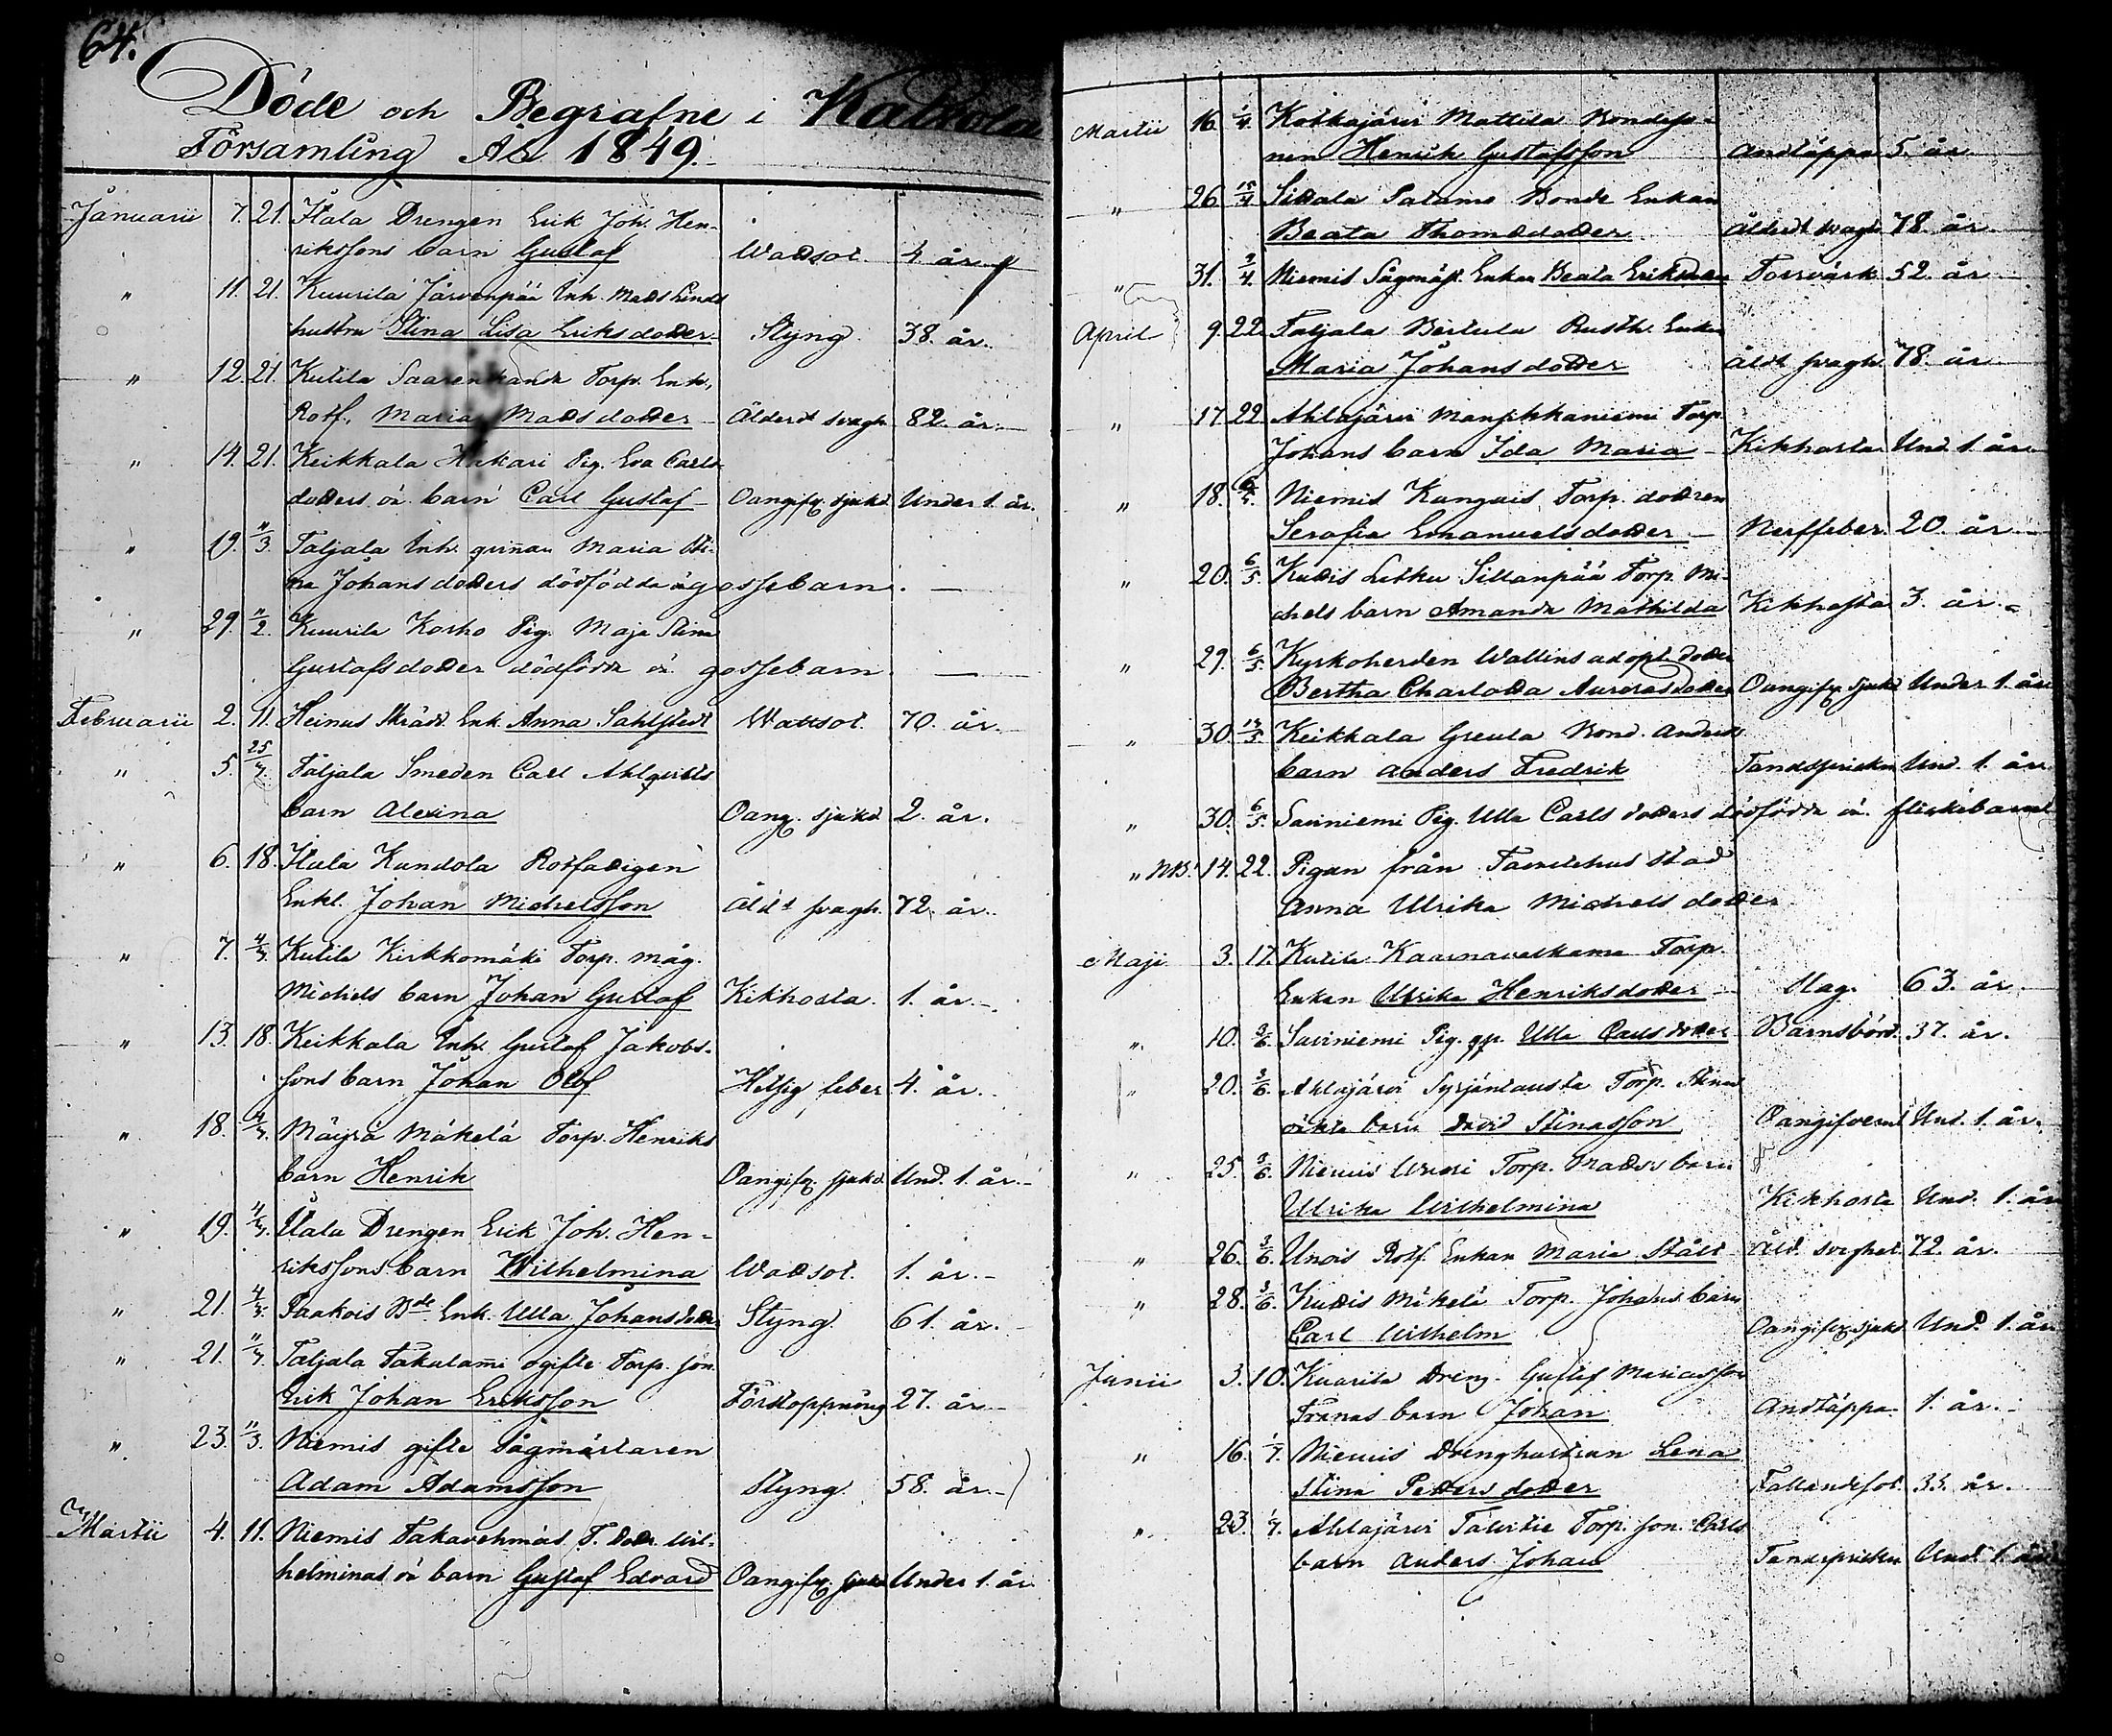 64.
Döde och Begrafne i Kalvola
Församling År 1849.
Januarii 7. 21. Ilala Drengen Erik Joh. Hen-
rikssons barn Gustaf Wattsot 4 år.
" 11. 21. Kuurila Järvenpää Inh. Mads Linds
hustru Stina Lisa Eriksdotter Styng 38. år.
" 12. 21. Kutila Saarenkanda Torp. Enk.,
Rotf. Maria Madsdotter Ålderd. svagh. 82. år.
" 14. 21. Keikkala Hakari Pig. Eva Carls
dotters oä. barn Carl Gustaf Oangifv. sjukd. Under 1. år.
" 19. 11/3. Taljala Inh. qvinnan Maria Sti-
na Johansdotters dödfödda oä gossebarn. —
" 29. 11/2. Kuurila Korho Pig. Maja Stina
Gustafsdotter dödfödda oä gossebarn. —
Februarii 2. 11. Heinus Skräd. Enk. Anna Sahlstedt Wattsot. 70. år.
" 5. 25/. Taljala Smeden Carl Ahlqvists
barn Alexina Oang. sjukd. 2. år.
" 6. 18. Ilala Kandola Rotfattigen
Enkl. Johan Michelsson Åld. svagh. 72. år.
" 7. 4/. Kutila Kirkkomäki Torp. måg.
Michels barn Johan Gustaf Kikhosta. 1. år.
" 13. 18. Keikkala Inh. Gustaf Jakobs-
sons barn Johan Olof Hetsig feber 4. år.
" 18. 4/. Mäyrä Mäkelä Torp. Henriks
barn Henrik Oangifv. sjukd. Und. 1. år.
" 19. 4/. Ilala Drengen Erik Joh. Hen-
rikssons barn Wilhelmina Wattsot. 1. år.
" 21. 4/3. Paakois Bde. Enk. Ulla Johansdotter Styng 61. år.
" 21. 11/. Taljala Takalami ogifte Torp. son.
Erik Johan Eriksson Förstoppning 27. år.
" 23. 11/3. Niemis gifte Sågmästaren
Adam Adamsson Styng 58. år.
Martii 4. 11. Niemis Takavehmas T. dottr. Wil-
helminas oä barn Gustaf Edvard Oangifv. sjukd. Under 1. år
Martii 16. 1/4. Kotkajärvi Mattila Bondeso-
nen Henrik Gustafsson Andtäppa 5. år.
" 26 15/4 Sittala Salamo Bonde Enkan
Beata Thomasdotter Ålderd. svagh. 78. år.
" 31. 9/4. Niemis Sågmäst. Enkan Beata Eriksdotter Torrvärk 52. år
April 9. 22. Taljala Bertula Rusth. Enka
Maria Johansdotter Åld. svagh. 78. år.
" 17 22. Ahlajärvi Mansikkaniemi Torp.
Johans barn Ida Maria Kikhosta Und. 1. år.
" 18. 6/5. Niemis Kanguis Torp. dottren
Serafia Emanuelsdotter Nerffeber 20. år
" 20. 6/5 Kuttis Letku Sillanpää Torp. Mi-
chels barn Amanda Mathilda Kikhosta 3. år.
" 29. 6/5. Kyrkoherden Wallins adopt. dotter
Bertha Charlotta Aurorasdotter Oangifv. sjukd. Under 1. år
" 30. 13/5. Keikkala Greula Bond. Anders
barn Anders Fredrik Tandsprickn. Und. 1. år
" 30. 6/5. Saviniemi Pig. Ulla Carlsdotters dödfödda oä. flickebarn
" NB. 14. 22. Pigan från Tavastehus stad
Anna Ulrika Michelsdotter
Maji 3. 17. Kutila Kaarnavalkama Torp.
Enkan Ulrika Henriksdotter Mag. 63. år.
" 10. 3/6. Saviniemi Pig. qp. Ulla Carlsdotter Barnsbörd. 37. år.
" 20. 3/6. Ahlajärvi Syrjäntausta Torp. Stinas
oäkta barn David Stinasson Oangifven Und. 1. år.
" 25. 3/6. Niemis Torp. Madss barn
Ulrika Wilhelmina Kikhosta Und. 1. år
" 26. 3/6. Unois Rotf. Enkan Maria Ståll Åld. svaghet 72. år.
" 28. 3/6. Kuttis Mäkelä Torp. Johans barn
Carl Wilhelm Oangifv. sjukd. Und. 1. år
Junii 3. 10. Kuurila Dreng. Gustaf Mariasson
Tranas barn Johan Andtäppa 1. år.
" 16. 1/7. Niemis Drenghustrun Lena
Stina Pettersdotter Fallandesot. 35. år.
" 23. 1/7. Ahlajärvi Talvitie Torp. son. Carls
barn Anders Johan Tandsprickn. Und. 1. år